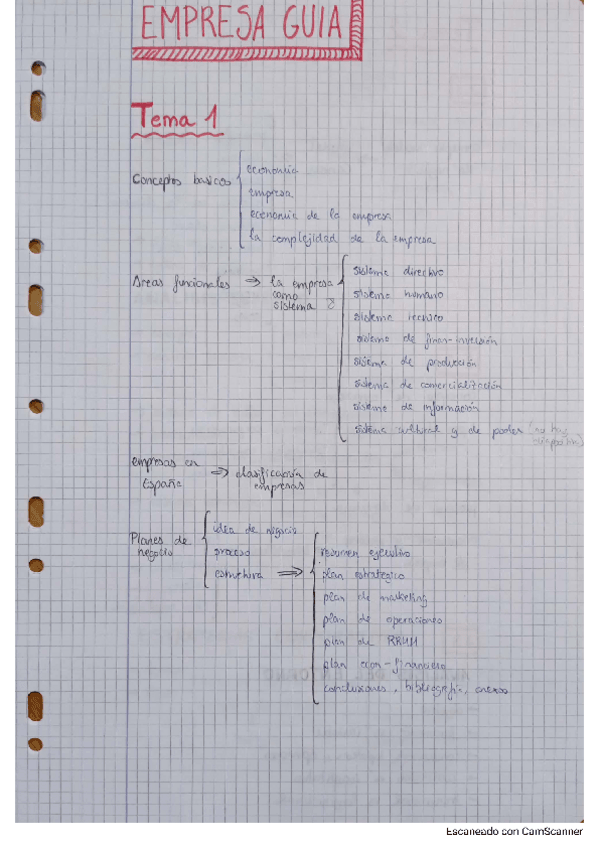 EMPRESA GUIA
Tema 1
Conceptos basicos
economia
empresa
economia de la empresa
la complejidad de la empresa
Areas funcionales → la empresa como sistema 8
sistema directivo
sistema humano
sistema tecnico
sistema de finan-inversión
sistema de producción
sistema de comercialización
sistema de información
sistema cultural y de poder (no hay diapositiva)
empresas en España ⇒ clasificación de empresas
Planes de negocio
idea de negocio
proceso
estructura ⇒
resumen ejecutivo
plan estrategico
plan de marketing
plan de operaciones
plan de RRHH
plan econ-financiero
conclusiones, bibliografia, anexos
Escaneado con CamScanner